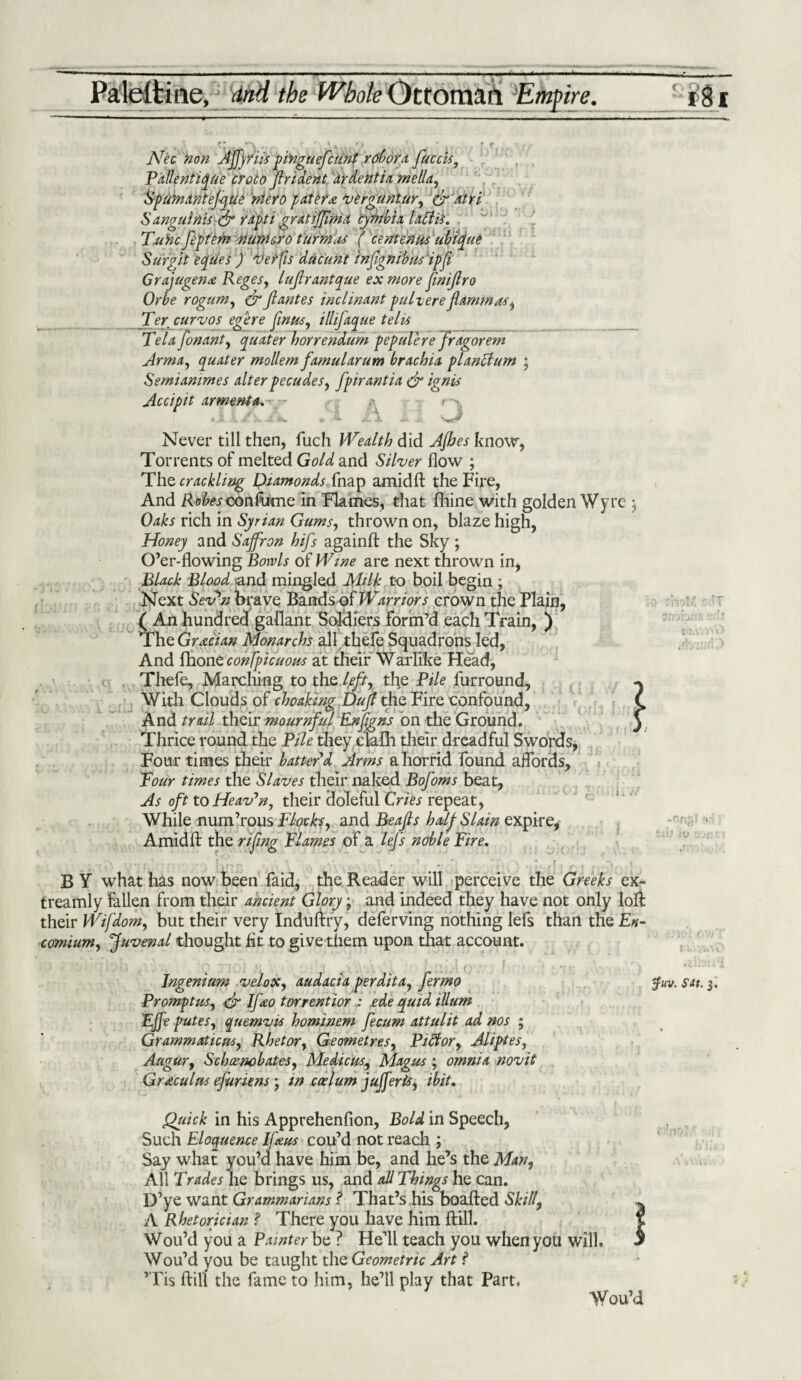 Paleſtine, and the Whole Ottoman Empire. 181
Nec non Aſſyriis pinguefcunt robora ſuccis,
Pallentique croco ſtrident ardentia mella,
Spumanteſque mero pateræ verguntur, & atri
Sanguinis & rapti gratiſſima cymbia lactis.
Tunc ſeptem numero turmas ( centenus ubique
Surgit eques ) verſis ducunt inſignibus ipſi
Grajugenæ Reges, luſtrantque ex more ſiniſtro
Orbe rogum, & ſtantes inclinant pulvere flammas,
Ter curvos egere ſinus, illiſaque telis
Tela ſonant, quater horrendum pepulere fragorem
Arma, quater mollem famularum brachia planctum ;
Semianimes alter pecudes, ſpirantia & ignis
Accipit armenta.
Never till then, ſuch Wealth did Aſhes know,
Torrents of melted Gold and Silver flow ;
The crackling Diamonds ſnap amidſt the Fire,
And Robes conſume in Flames, that ſhine with golden Wyre ;
Oaks rich in Syrian Gums, thrown on, blaze high,
Honey and Saffron hiſs againſt the Sky ;
O'er-flowing Bowls of Wine are next thrown in,
Black Blood and mingled Milk to boil begin ;
Next Sev'n brave Bands of Warriors crown the Plain,
( An hundred gallant Soldiers form'd each Train, )
The Græcian Monarchs all theſe Squadrons led,
And ſhone conſpicuous at their Warlike Head,
Theſe, Marching to the left, the Pile ſurround,
With Clouds of choaking Duſt the Fire confound,
And trail their mournful Enſigns on the Ground.
Thrice round the Pile they claſh their dreadful Swords,
Four times their batter'd Arms a horrid ſound affords,
Four times the Slaves their naked Boſoms beat,
As oft to Heav'n, their doleful Cries repeat,
While num'rous Flocks, and Beaſts half Slain expire,
Amidſt the riſing Flames of a leſs noble Fire.
BY what has now been ſaid, the Reader will perceive the Greeks ex-
treamly fallen from their ancient Glory ; and indeed they have not only loſt
their Wiſdom, but their very Induſtry, deſerving nothing leſs than the En-
comium, Juvenal thought fit to give them upon that account.
Ingenium velox, audacia perdita, ſermo Juv. Sat. 3.
Promptus, & Iſæo torrentior : ede quid illum
Eſſe putes, quemvis hominem ſecum attulit ad nos ;
Grammaticus, Rhetor, Geometres, Pictor, Aliptes,
Augur, Schœnobates, Medicus, Magus ; omnia novit
Græculus eſuriens ; in cœlum juſſeris, ibit.
Quick in his Apprehenſion, Bold in Speech,
Such Eloquence Iſæus cou'd not reach ;
Say what you'd have him be, and he's the Man,
All Trades he brings us, and all Things he can.
D'ye want Grammarians ? That's his boaſted Skill,
A Rhetorician ? There you have him ſtill.
Wou'd you a Painter be ? He'll teach you when you will.
Wou'd you be taught the Geometric Art ?
'Tis ſtill the ſame to him, he'll play that Part.
Wou'd